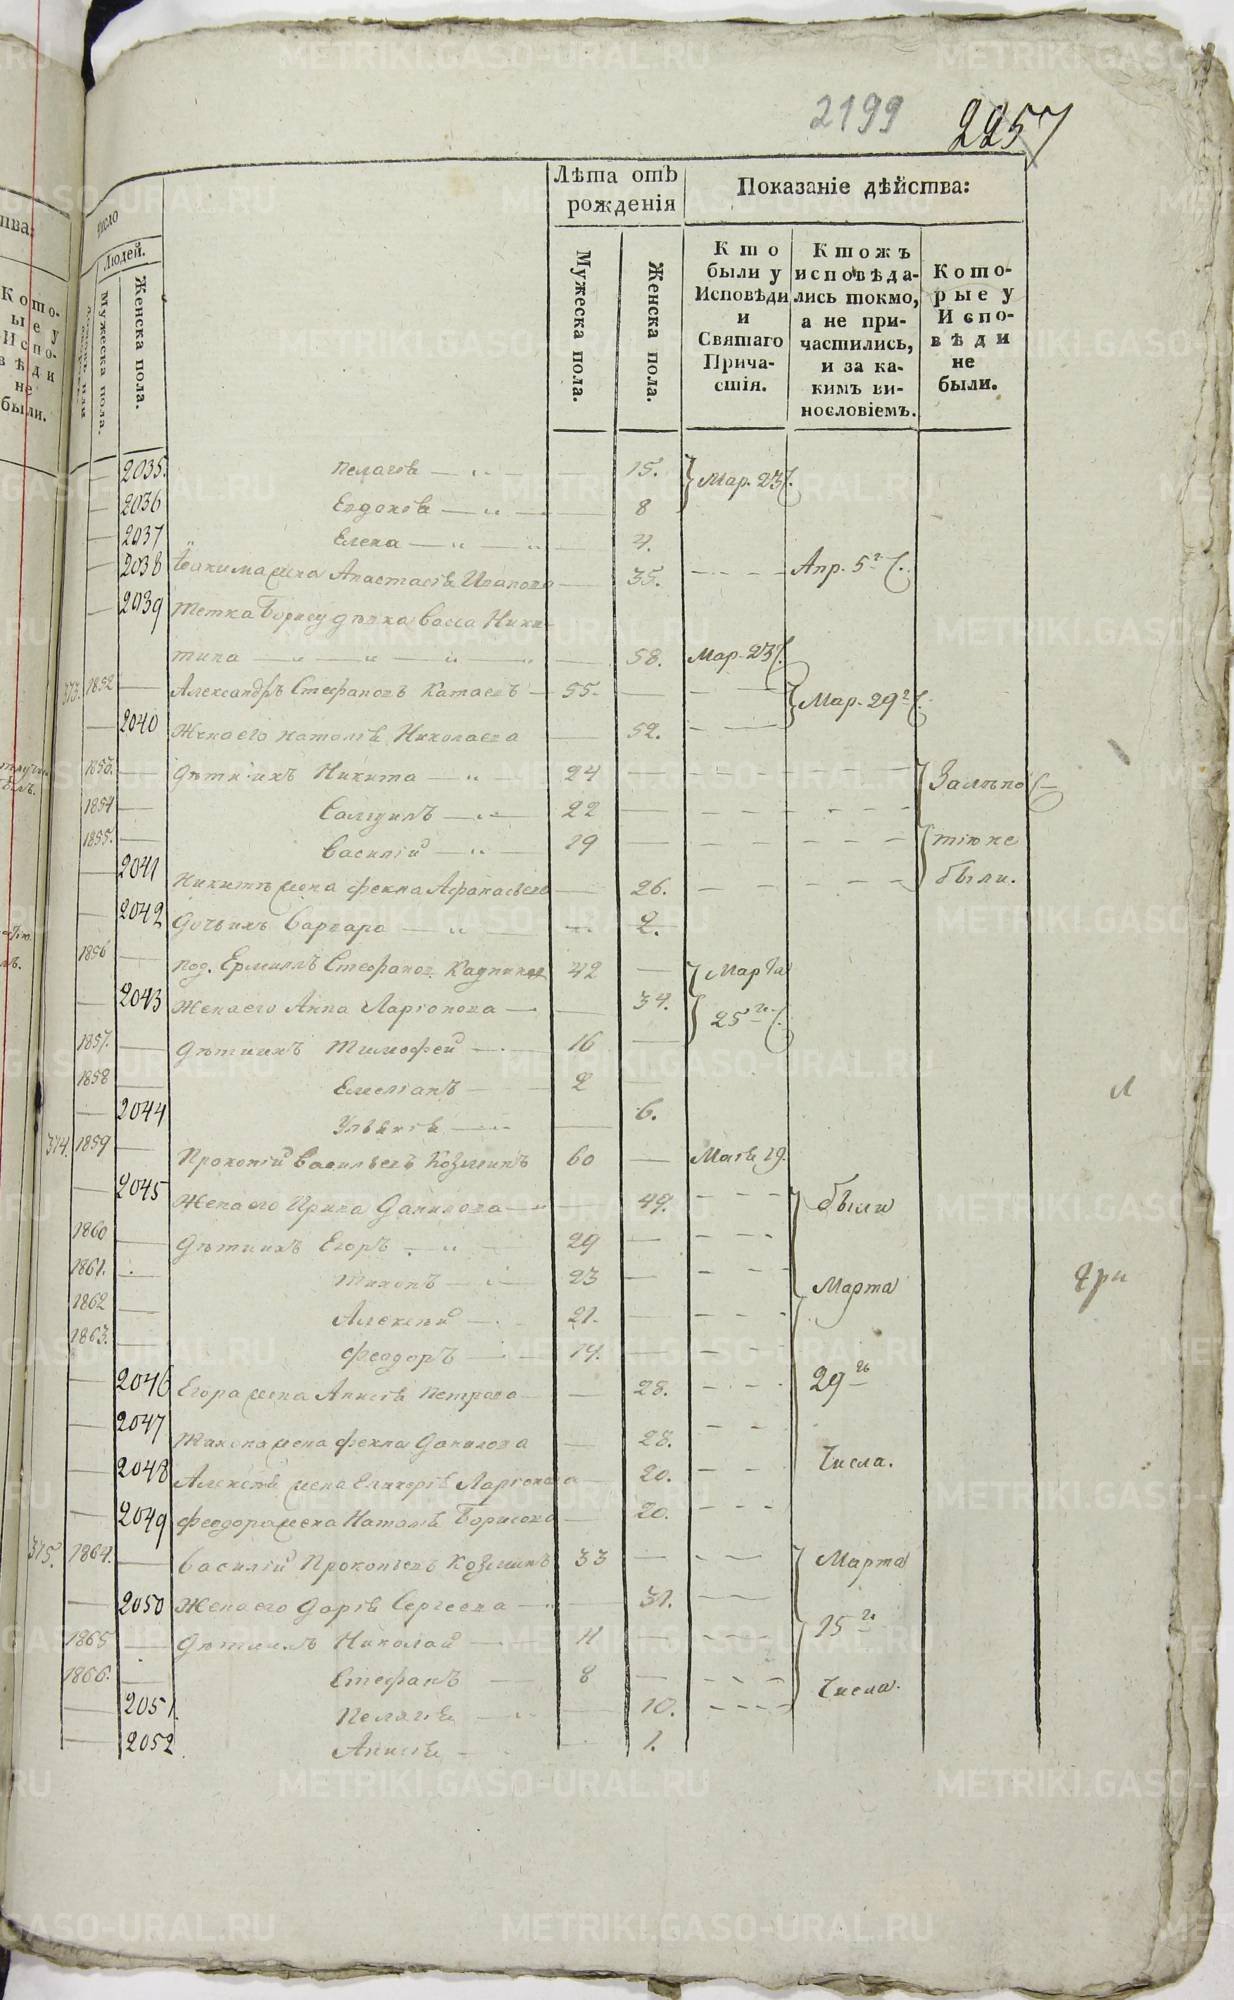 2199 2257
число Людей.
Мужеска пола.
Женска пола.
Лѣта отъ рожденія
Мужеска пола.
Женска пола.
Показаніе дѣйства:
Кто были у Исповѣди и Святаго Причастія.
Ктожъ исповѣдались токмо, а не причастились, и за какимъ винословіемъ.
Которые у Исповѣди не были.
2035. Пелагѣя 15. Мар. 23
2036 Евдокѣя 8
2037 Елена 4.
2038 Іоакима жена Анастасія Иванова 35. Апр. 5
2039 тетка Борису дѣвка Васса Ники-
тина 58. Мар. 23
373. 1852 Александръ Стефановъ Катаевъ 55. Мар. 29
2040 Жена его Наталія Николаева 52.
1853. Дѣти ихъ Никита 24 Залѣно
1854 Самуилъ 22
1855. Василій 19 тію не
2041 Никиты жена Фекла Афанасьева 26. были.
2042 Дочь ихъ Варвара 2.
1856 под. Ермилъ Стефанов 42 Марта
2043 Жена его Анна Ларіонова 34. 25
1857. Дѣти ихъ Тимофей 16
1858 Емеліанъ 2
2044 Ульянія 6.
374. 1859 Прокопій Васильевъ Козминъ 60 19.
2045 Жена его Ирина Данилова 49. были
1860 Дѣти ихъ Егоръ 29
1861. Тихонъ 23 Марта
1862 Алексѣй 21.
1863. Феодоръ 19.
2046 Егора жена Анисія Петрова 28. 29
2047 Тихона жена Фекла Данилова 28.
2048 Алексѣя жена Ларіонова 20. Числа.
2049 Феодора жена Наталія Борисова 20.
375. 1864. Василій Прокопьевъ Козминъ 33 Марта
2050 Жена его Дарія Сергеева 31.
1865 Дѣти ихъ Николай 11 15
1866. Стефанъ 8 Числа.
2051 Пелагія 10.
2052 Анисія 1.
при
METRIKI.GASO-URAL.RU